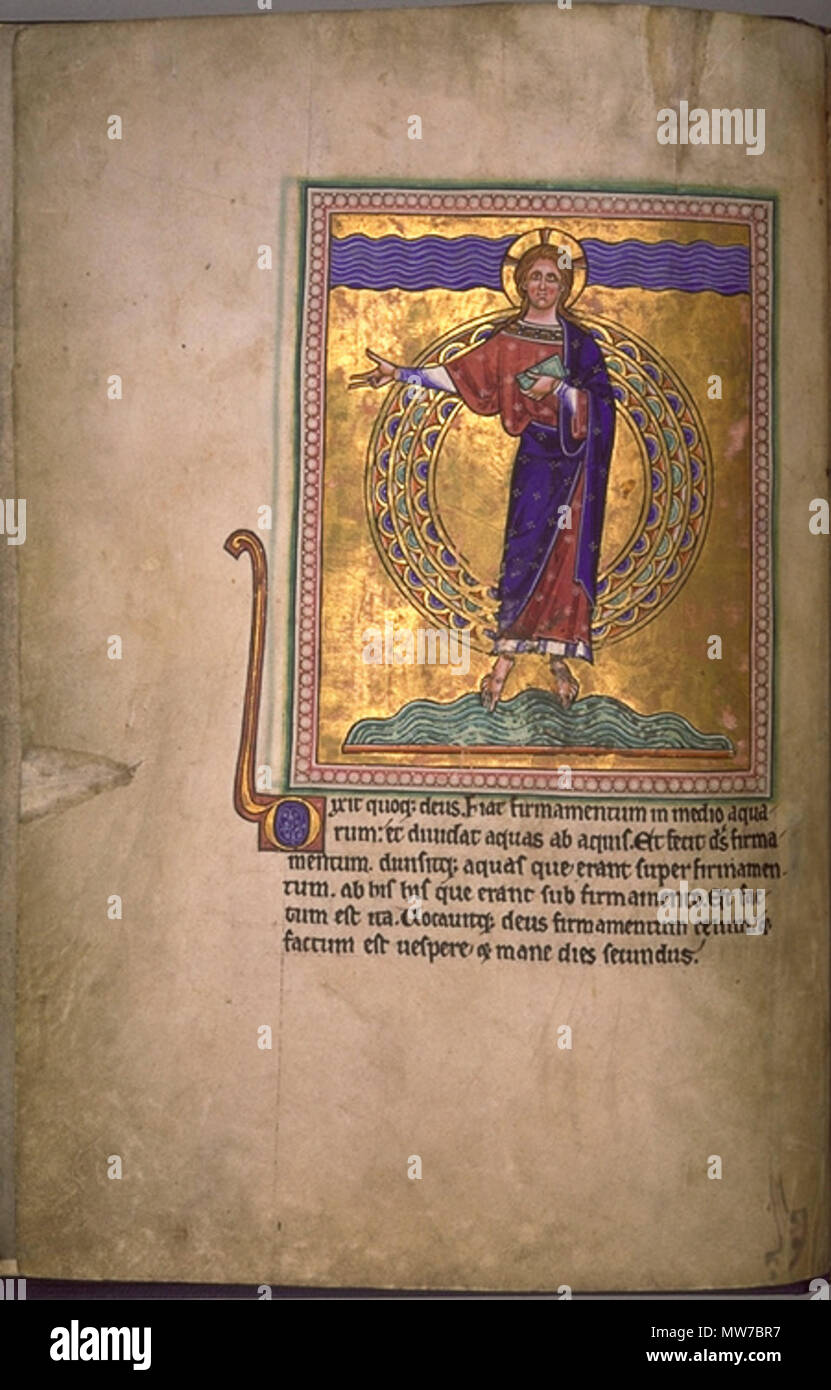 Dixit quoq; deus. Fiat firmamentum in medio aqua
rum: et diuidat aquas ab aquis. Et fecit ds firma
mentum. diuisitq; aquas que erant super firmamen
tum. ab his his que erant sub firmamento. Et fac
tum est ita. Uocauitq; deus firmamentum celum. &
factum est uespere, & mane dies secundus.
alamy
alamy
alamy
a alamy stock photo
alamy
Image ID: MW7BR7
www.alamy.com